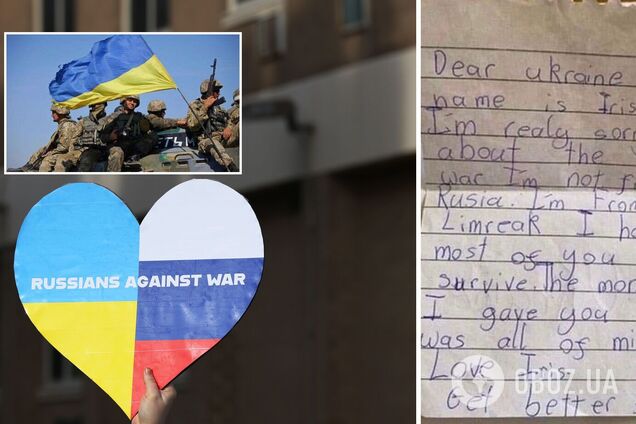 RUSSIANS AGAINST WAR
Dear ukraine
name is Iris
I'm realy sorr
about the
war I'm not f
Rusia. I'm From
Limreak I ho
most of you
survive. The mon
I gave you
was all of mi
Love Iris.
Get better
OBOZ.UA